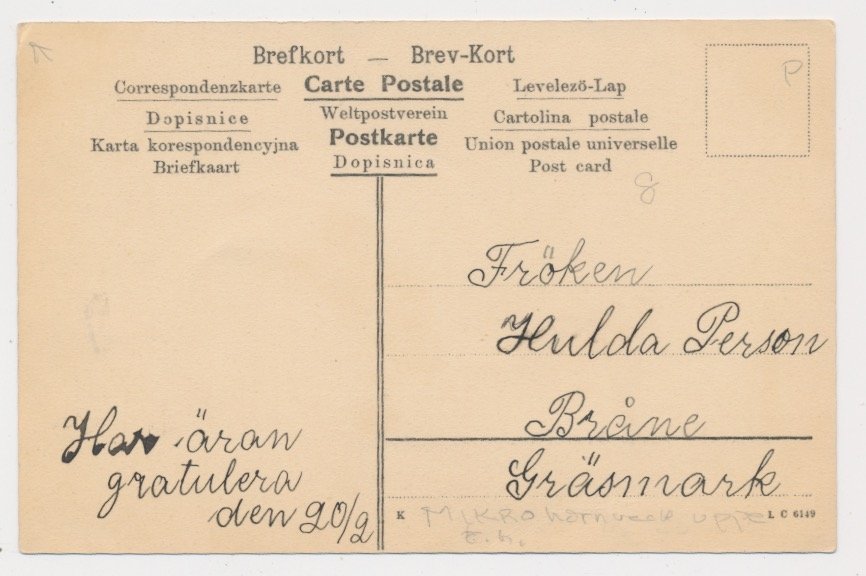 Brefkort — Brev-Kort
Correspondenzkarte Carte Postale Levelező-Lap
Dopisnice Weltpostverein Cartolina postale
Karta korespondencyjna Postkarte Union postale universelle
Briefkaart Dopisnica Post card
P
8
Fröken
Hulda Person
Bråne
Gräsmark
Har äran
gratulera
den 20/2
K MIKRO L C 6149